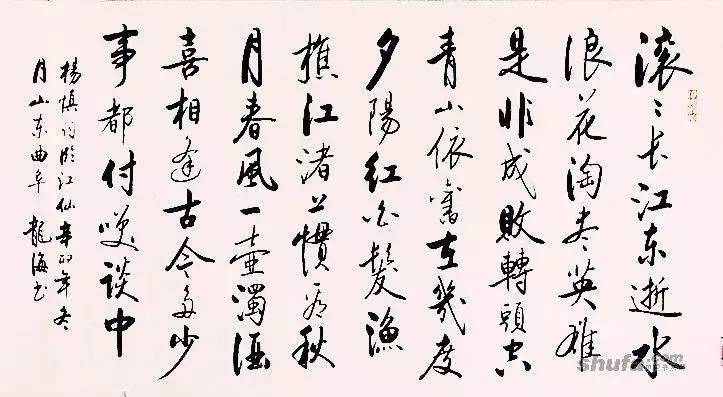 滚〻长江东逝水
浪花淘尽英雄
是非成敗轉頭空
青山依舊在幾度
夕陽红白髮漁
樵江渚上慣看秋
月春風一壶濁酒
喜相逢古今多少
事都付咲談中
楊慎词临江仙辛卯年冬
月山东曲阜龍海书
shufa.com